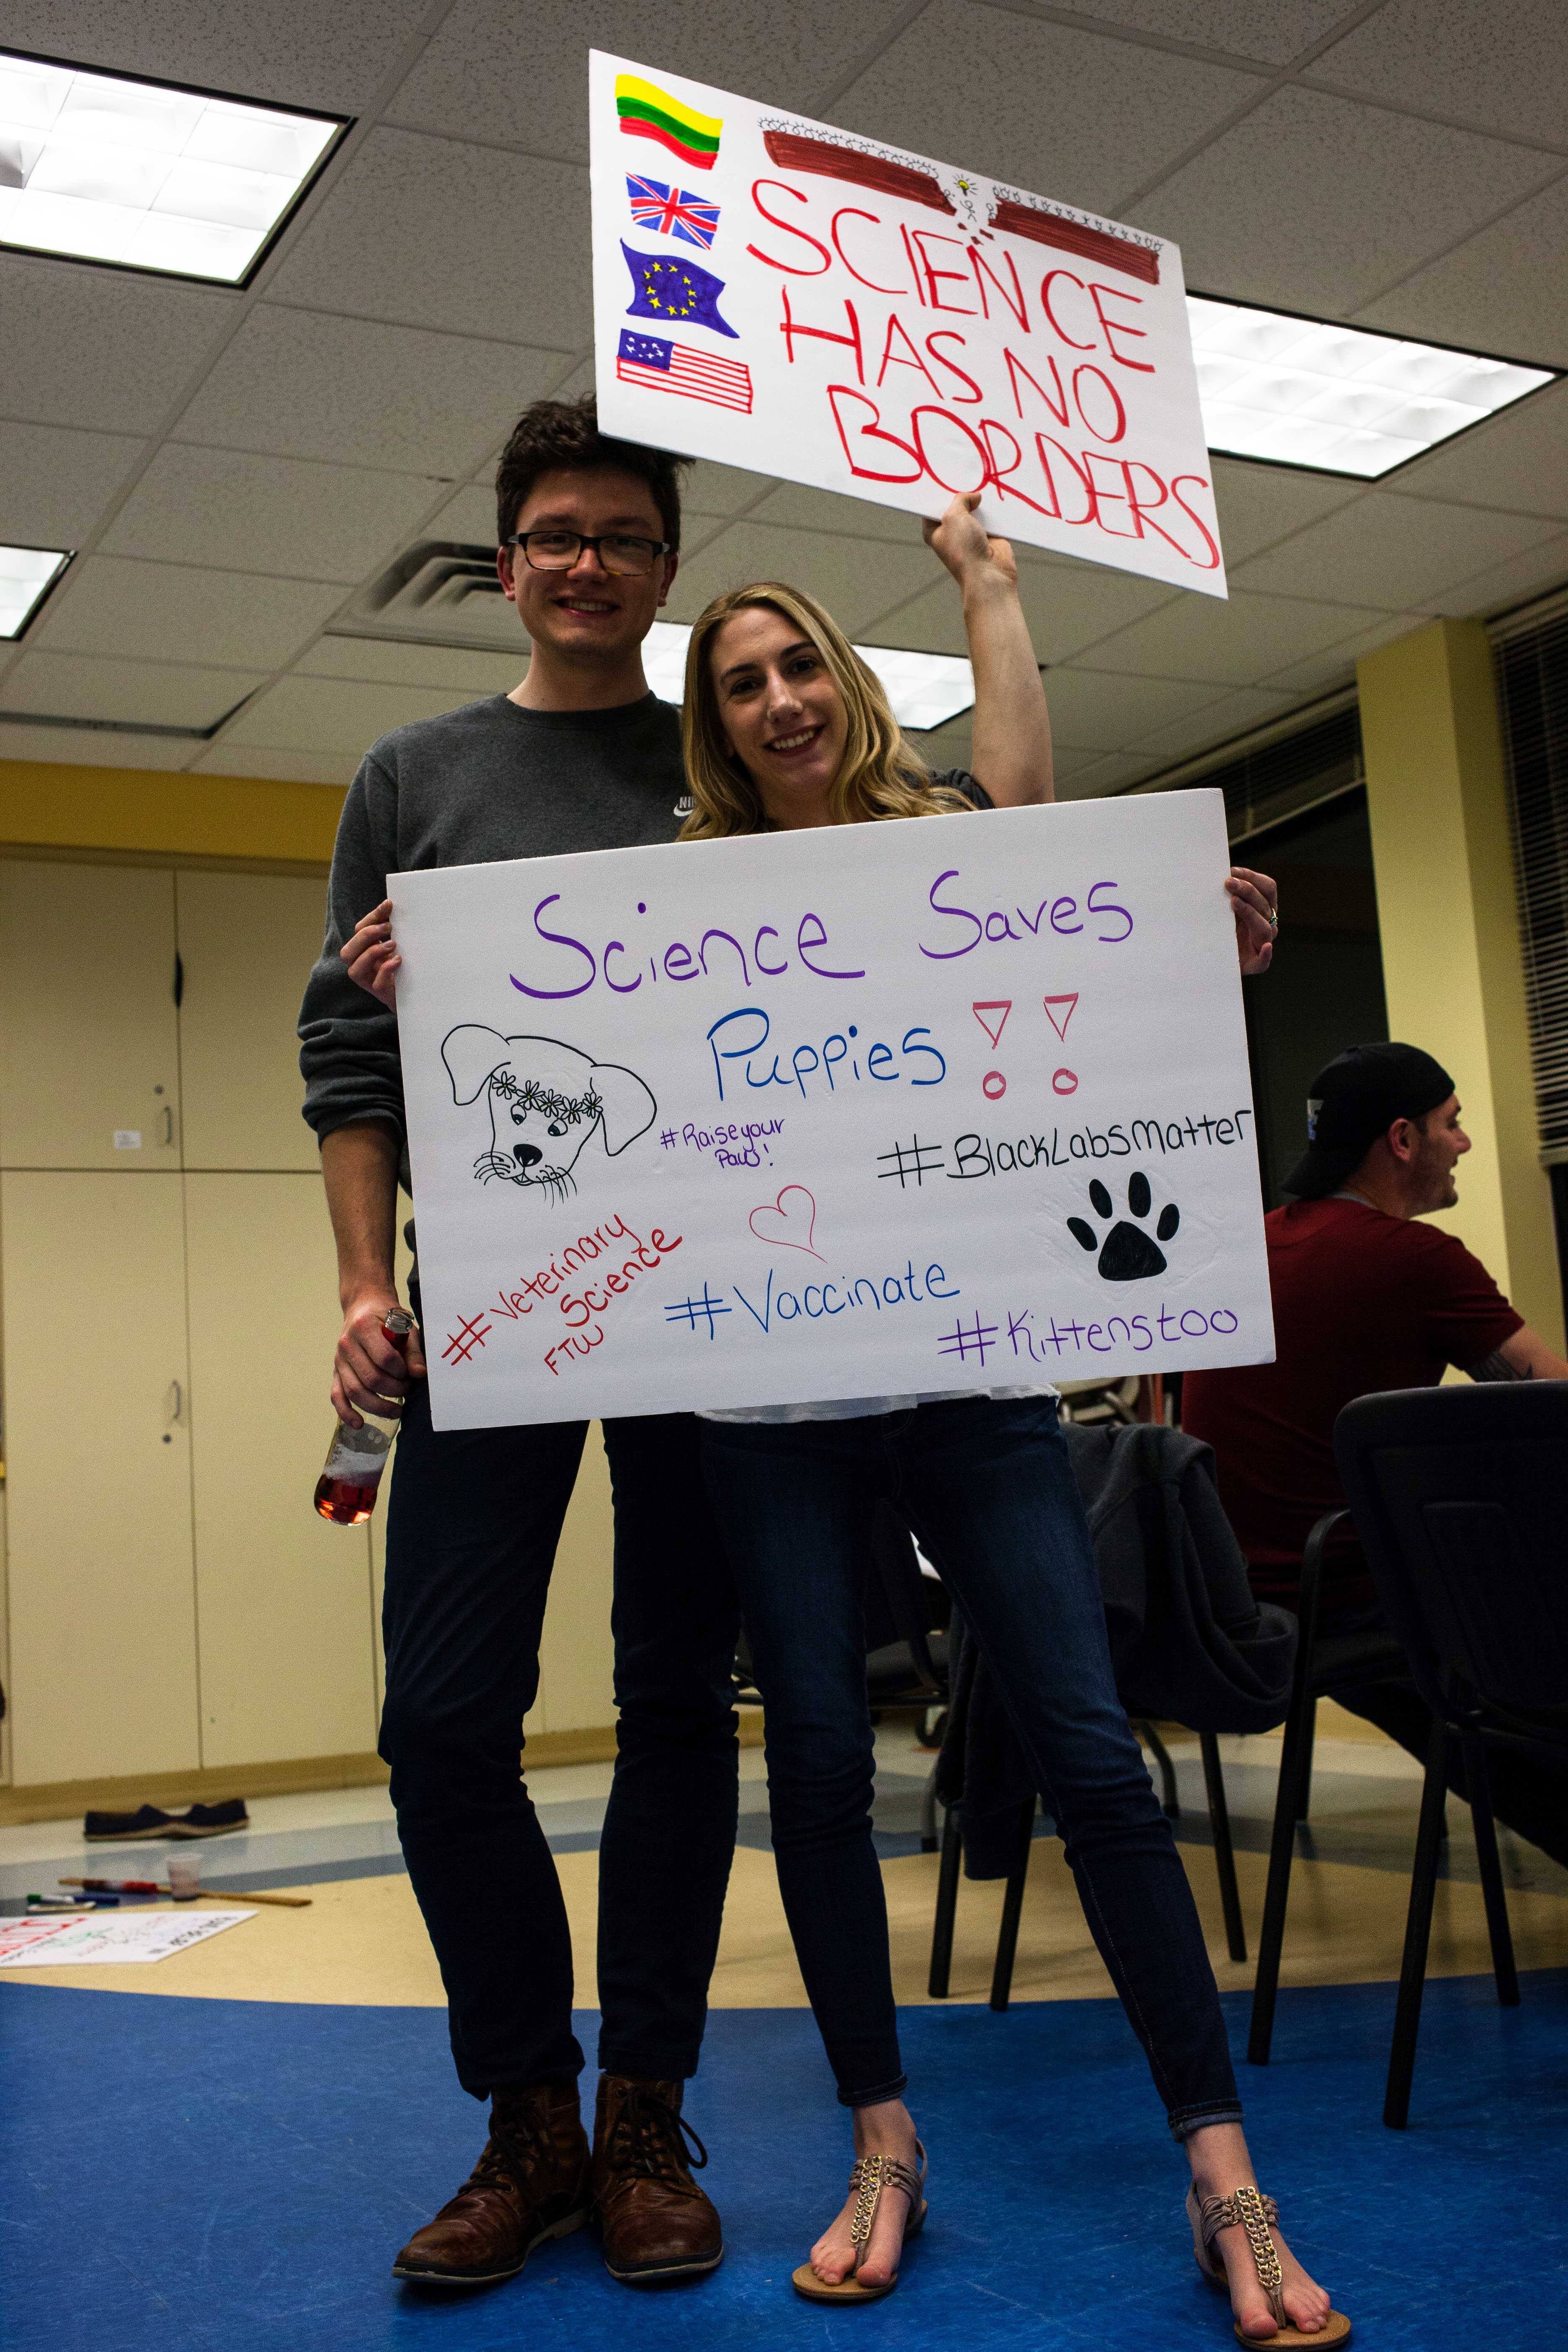 SCIENCE
HAS NO
BORDERS
NIKE
Science Saves
Puppies !!
#Raiseyour
Paw!
#BlackLabsmatter
#Veterinary
Science
FTW
#Vaccinate
#Kittenstoo